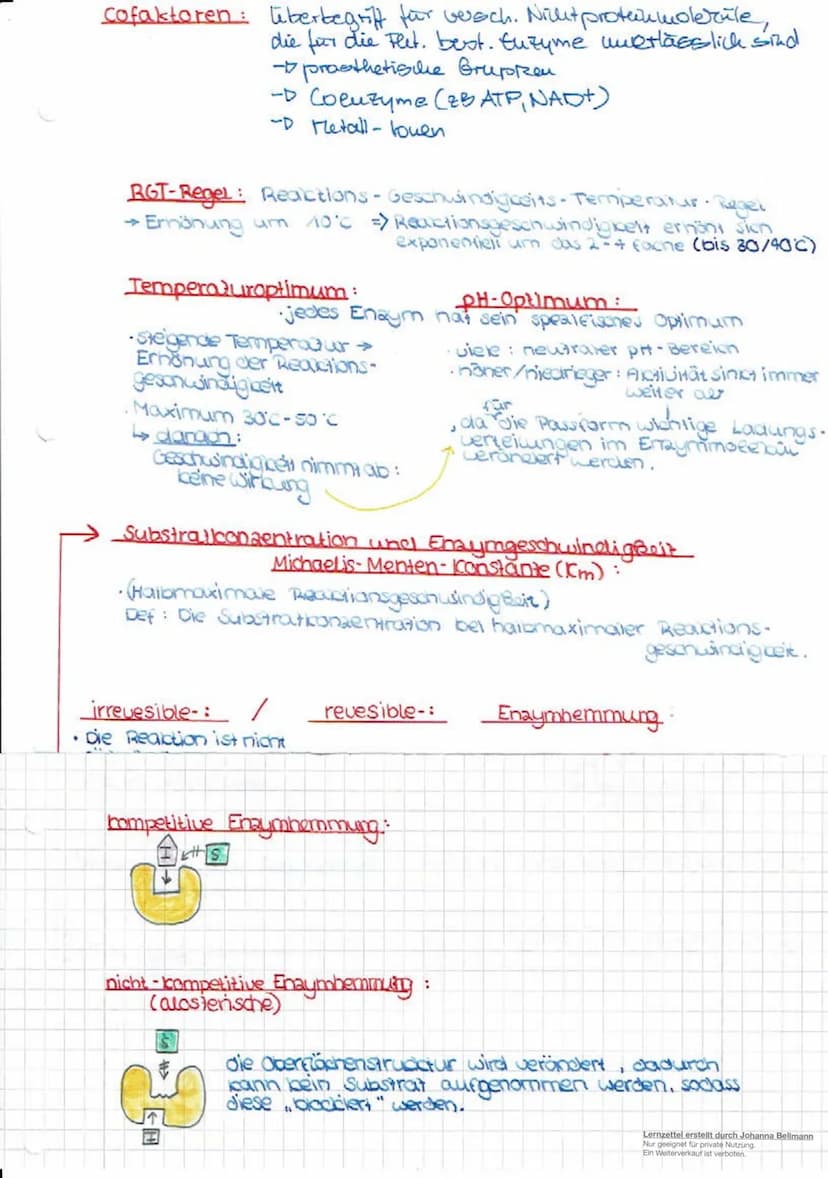 Cofaktoren: Überbegriff für versch. Nichtproteinmoleküle,
die für die Fkt. best. Enzyme unerlässlich sind
→ prosthetische Gruppen
→ Coenzyme (zB ATP, NAD+)
→ Metall-Ionen
RGT-Regel: Reaktions-Geschwindigkeits-Temperatur-Regel
→ Erhöhung um 10°C => Reaktionsgeschwindigkeit erhöht sich
exponentiell um das 2-4 fache (bis 30/40°C)
Temperaturoptimum: pH-Optimum:
·jedes Enzym hat sein spezifisches Optimum
·steigende Temperatur →
Erhöhung der Reaktions-
geschwindigkeit
·Maximum 30°C-50°C
↳ danach:
Geschwindigkeit nimmt ab:
keine Wirkung
·viele: neutraler pH-Bereich
·höher/niedrieger: Aktivität sinkt immer
weiter ab
für
, da die Passform wichtige Ladungs-
verteilungen im Enzymmolekül
verändert werden.
→ Substratkonzentration und Enzymgeschwindigkeit
Michaelis-Menten-Konstante (Km):
·(Halbmaximale Reaktionsgeschwindigkeit)
Def: Die Substratkonzentration bei halbmaximaler Reaktions-
geschwindigkeit.
irrevesible-: / revesible-: Enzymhemmung:
· Die Reaktion ist nicht
kompetitive Enzymhemmung:
I S
nicht-kompetitive Enzymhemmung:
(alosterische)
S
die Oberflächenstrucktur wird verändert, dadurch
kann kein Substrat aufgenommen werden, sodass
diese „blockiert" werden.
I
Lernzettel erstellt durch Johanna Bellmann
Nur geeignet für private Nutzung.
Ein Weiterverkauf ist verboten.